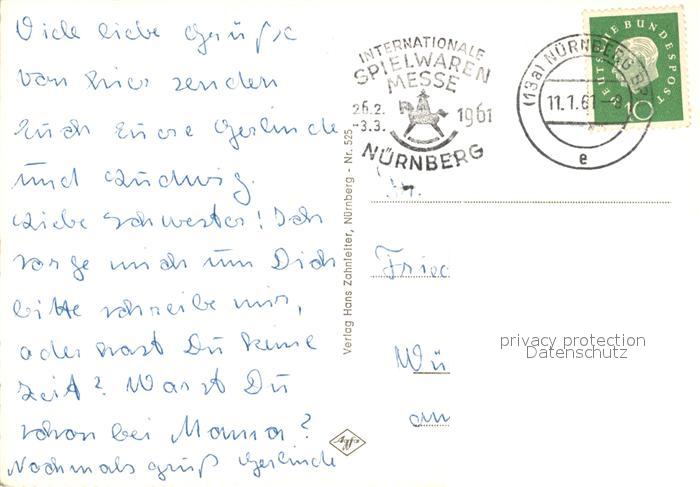 Viele liebe Grüße
von hier senden
Euch Eure Gerlinde
und Ludwig.
Liebe Schwester! Ich
sorge mich um Dich
bitte schreibe mir,
oder hast Du keine
Zeit? Warst Du
schon bei Mama?
Nochmals Gruß Gerlinde
Verlag Hans Zahnleiter, Nürnberg - Nr. 525
Agfa
INTERNATIONALE
SPIELWAREN
MESSE
26.2.
-3.3.
1961
NÜRNBERG
(13a) NÜRNBERG
11.1.61-8
e
DEUTSCHE BUNDESPOST
10
Frie
Wü
am
privacy protection
Datenschutz